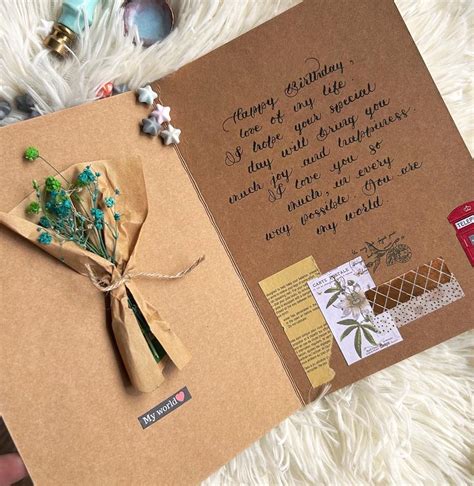 Happy Birthday,
love of my life.
I hope your special
day will bring you
much joy and happiness.
I love you so
much, in every
way possible You are
my world
TELEPHONE
CARTE POSTALE
My world❤